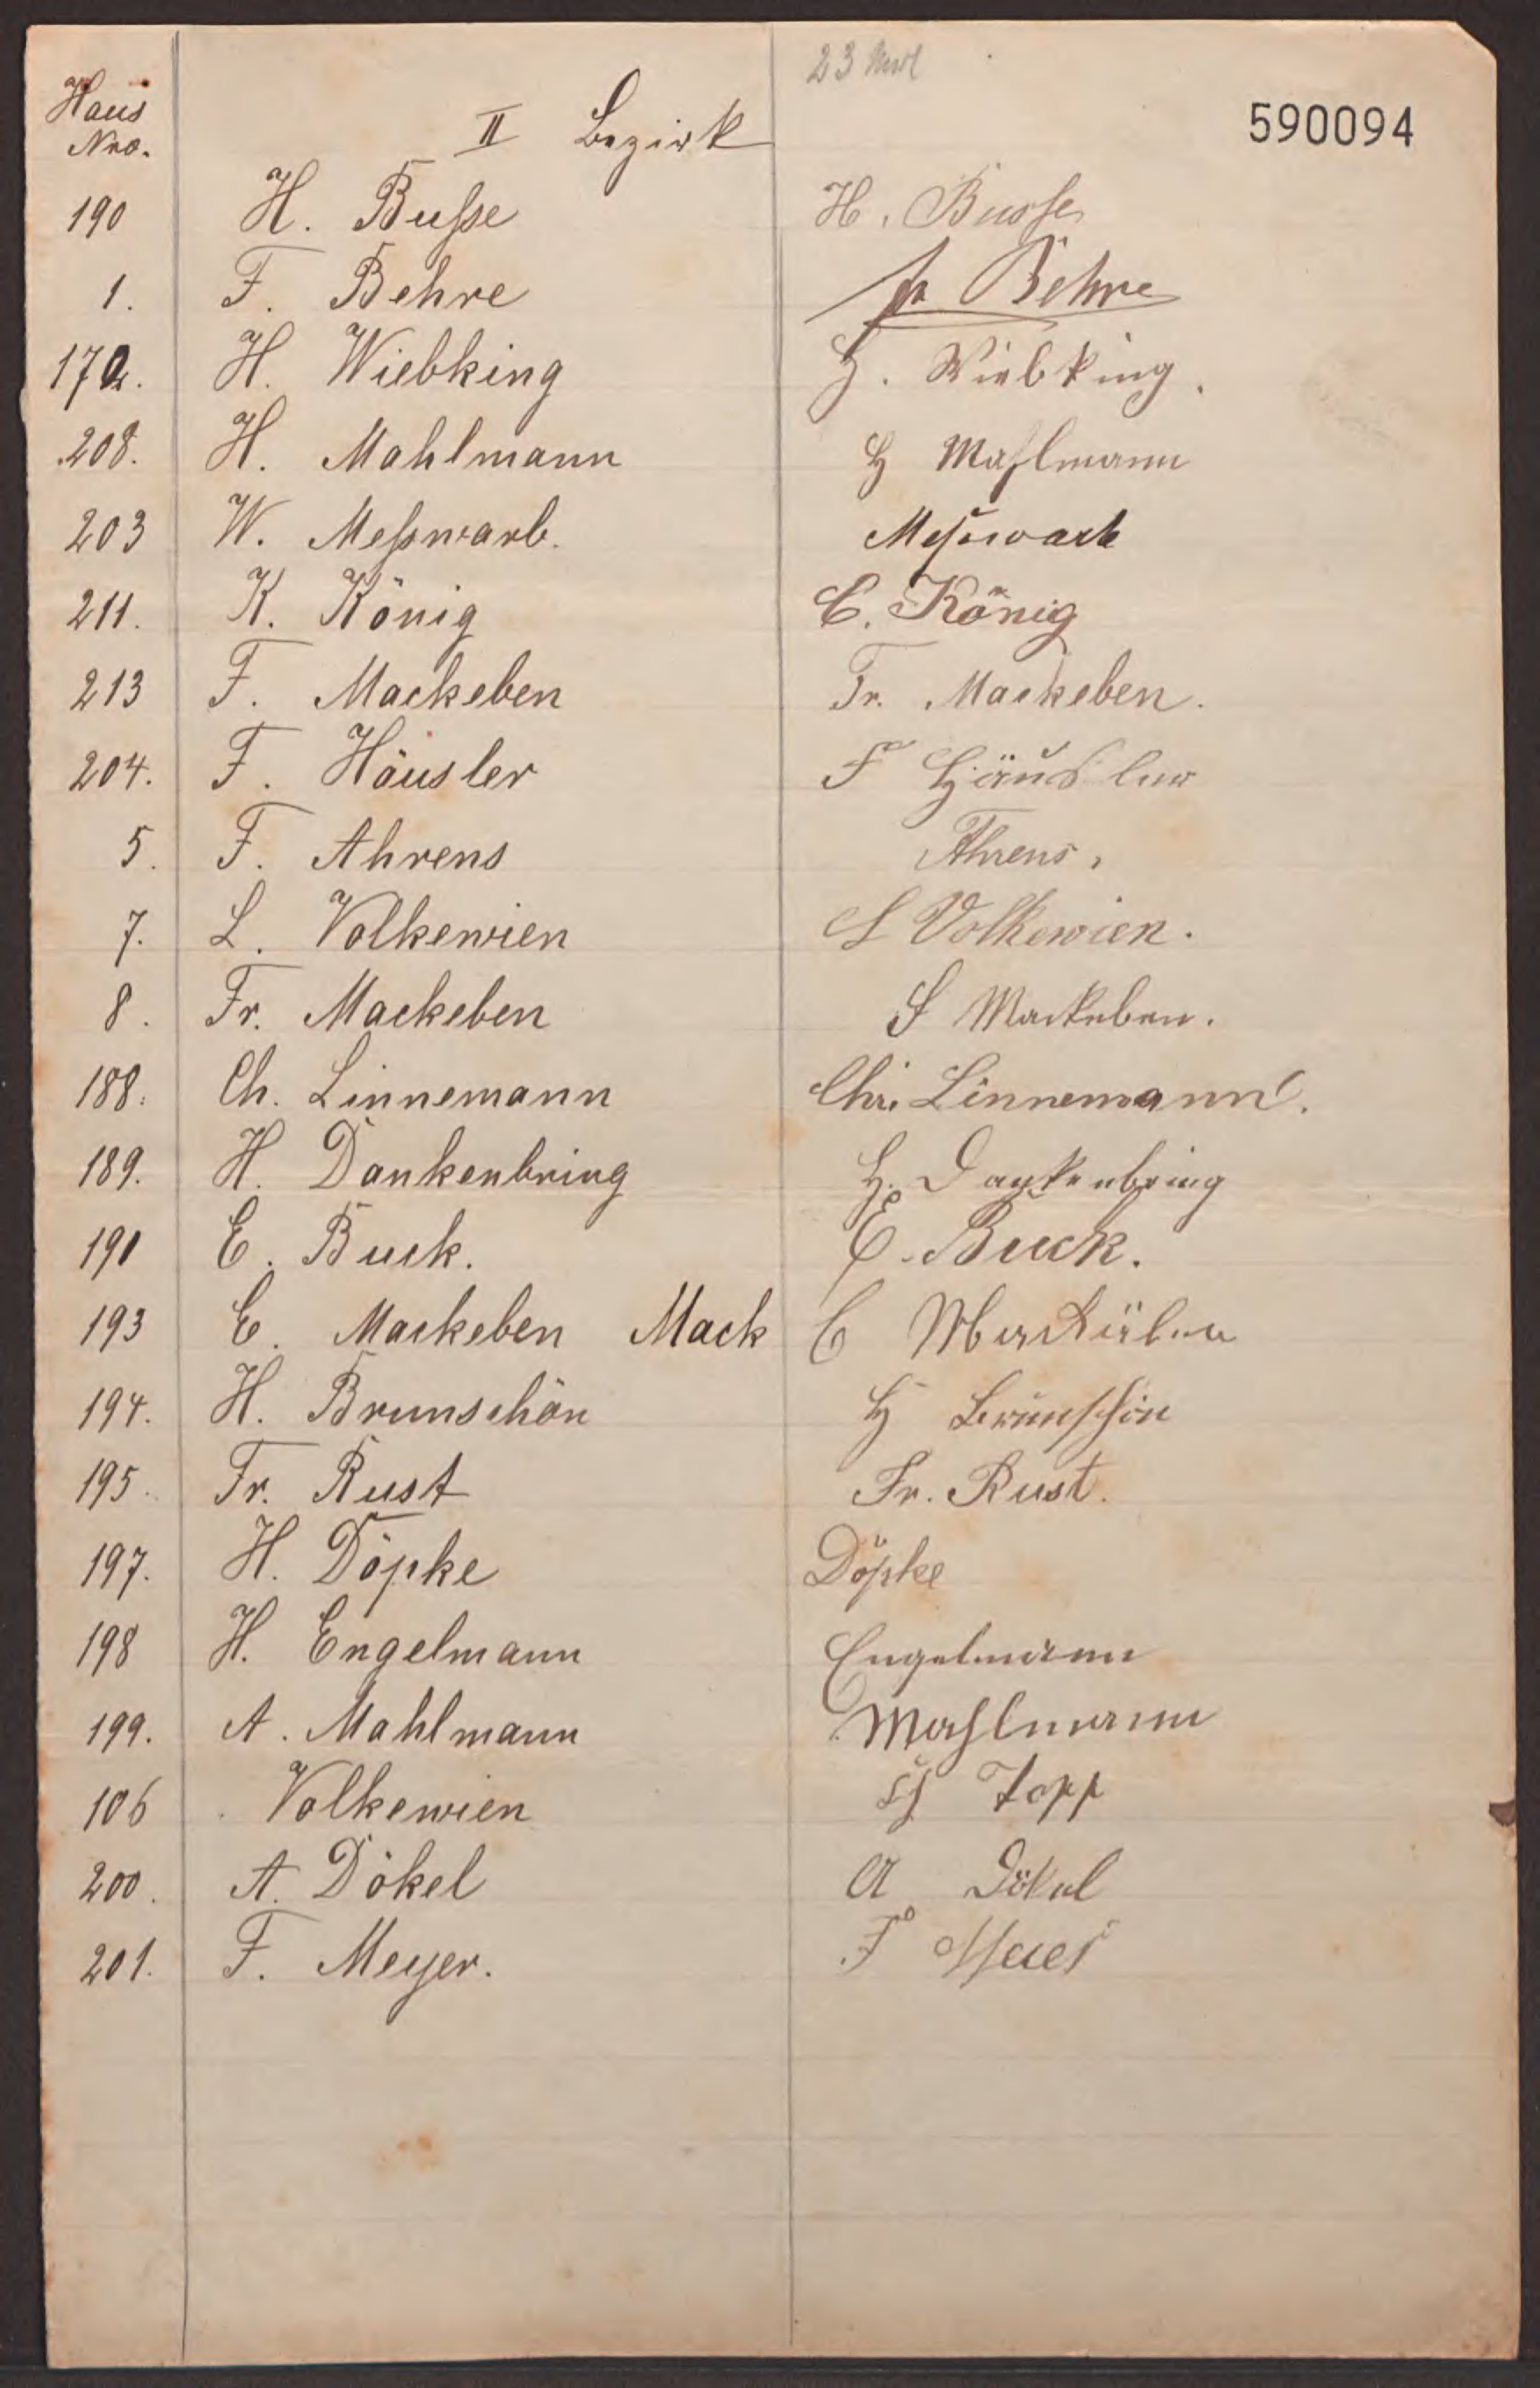 23
Haus Nro.
II Bezirk
590094
190 H. Buße H. Busse
1. F. Behre Fr Behre
172. H. Wiebking H. Wiebking.
208. H. Mahlmann H Mahlmann
203 W. Meßwarb. Meßwarb
211. K. König C. König
213 F. Mackeben Fr. Mackeben.
204. F. Häusler F Häusler
5. F. Ahrens Ahrens.
7. L. Volkewien L Volkewien.
8. Fr. Mackeben F Mackeben.
188. Ch. Linnemann Chr. Linnemann.
189. H. Dankenbring H. Dankenbring
190 E. Buck. E. Buck.
193 C. Mackeben Mack C Mackeben
194. H. Brunschön H Brunschön
195. Fr. Rust Fr. Rust.
197. H. Döpke Döpke
198 H. Engelmann Engelmann
199. A. Mahlmann Mahlmann
106 Volkewien Topp
200. A. Dökel A Dökel
201. F. Meyer. F Meier